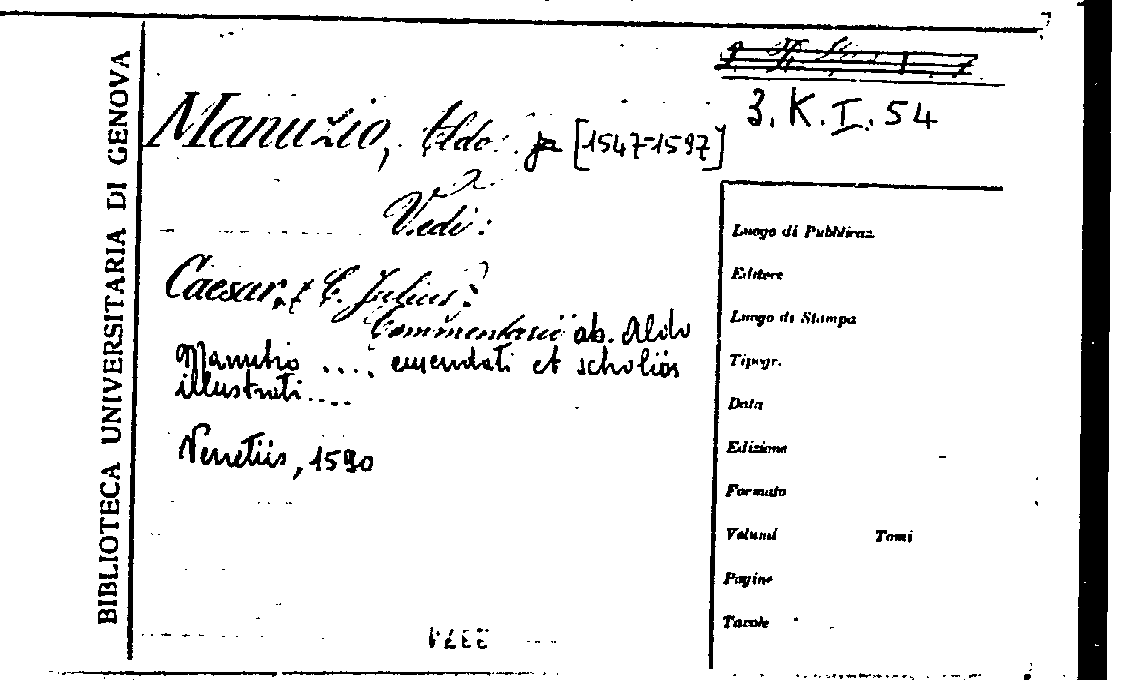 BIBLIOTECA UNIVERSITARIA DI GENOVA
3. K. I. 54
Manuzio, Aldo [1547-1597]
Vedi:
Caesar, C. Julius:
Commentarii ab. Aldo
Manutio .... emendati et scholiis
illustrati....
Venetiis, 1590
Luogo di Pubblicaz.
Editore
Luogo di Stampa
Tipogr.
Data
Edizione
Formato
Volumi Tomi
Pagine
Tavole